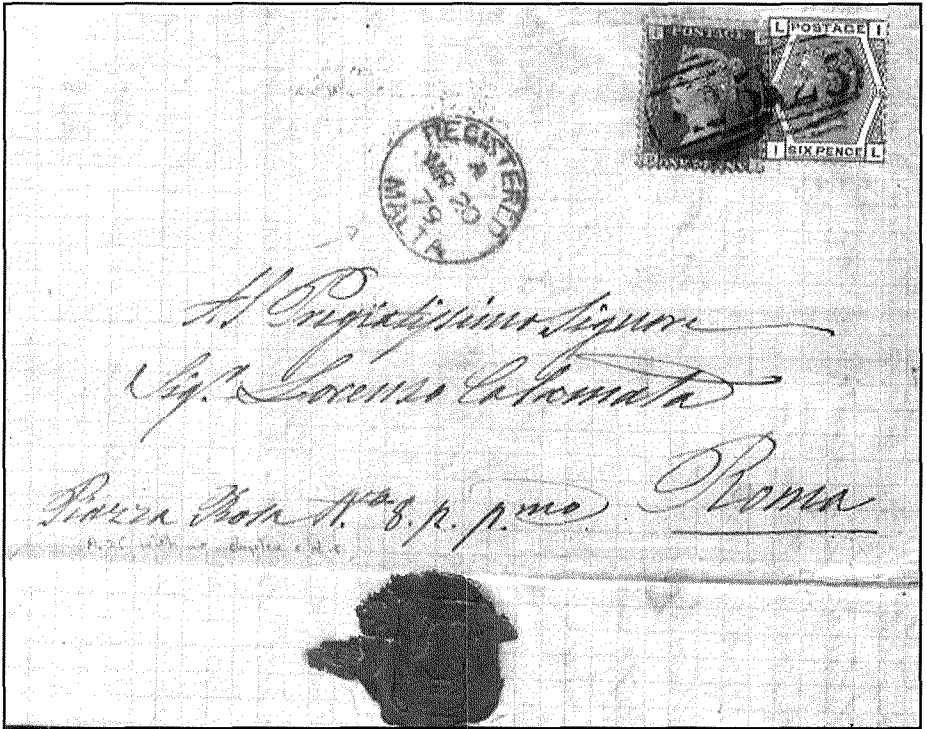 L POSTAGE I
I SIX PENCE L
REGISTERED
A
MR 20
79
MALTA
Al Pregiatissimo Signore
Sigr. Lorenzo
Piazza Rosa No. 8. p. p.mo
Roma